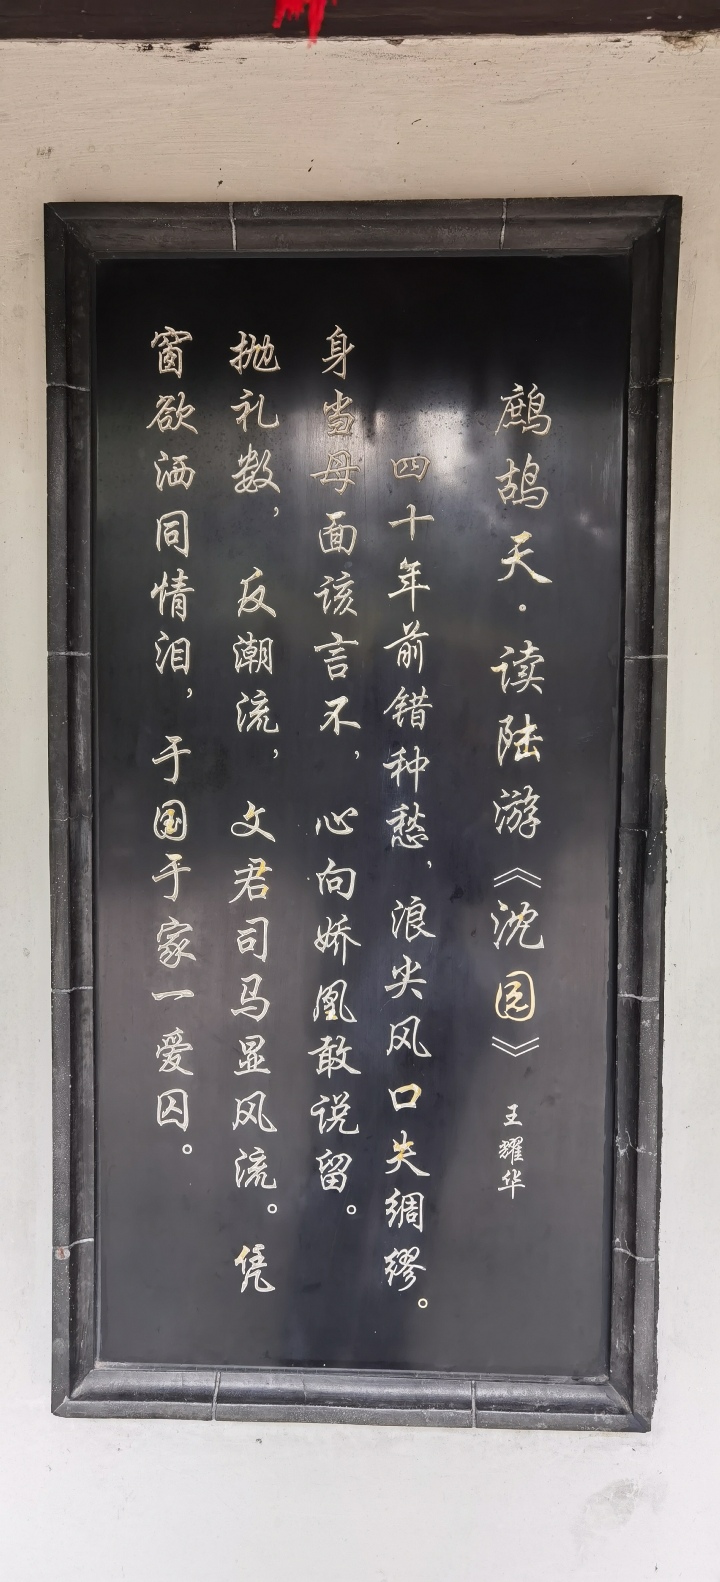 鹧鸪天·读陆游《沈园》 王耀华
四十年前错种愁，浪尖风口失绸缪。
身当母面该言不，心向娇凰敢说留。
抛礼数，反潮流，文君司马显风流。凭
窗欲洒同情泪，于国于家一爱囚。